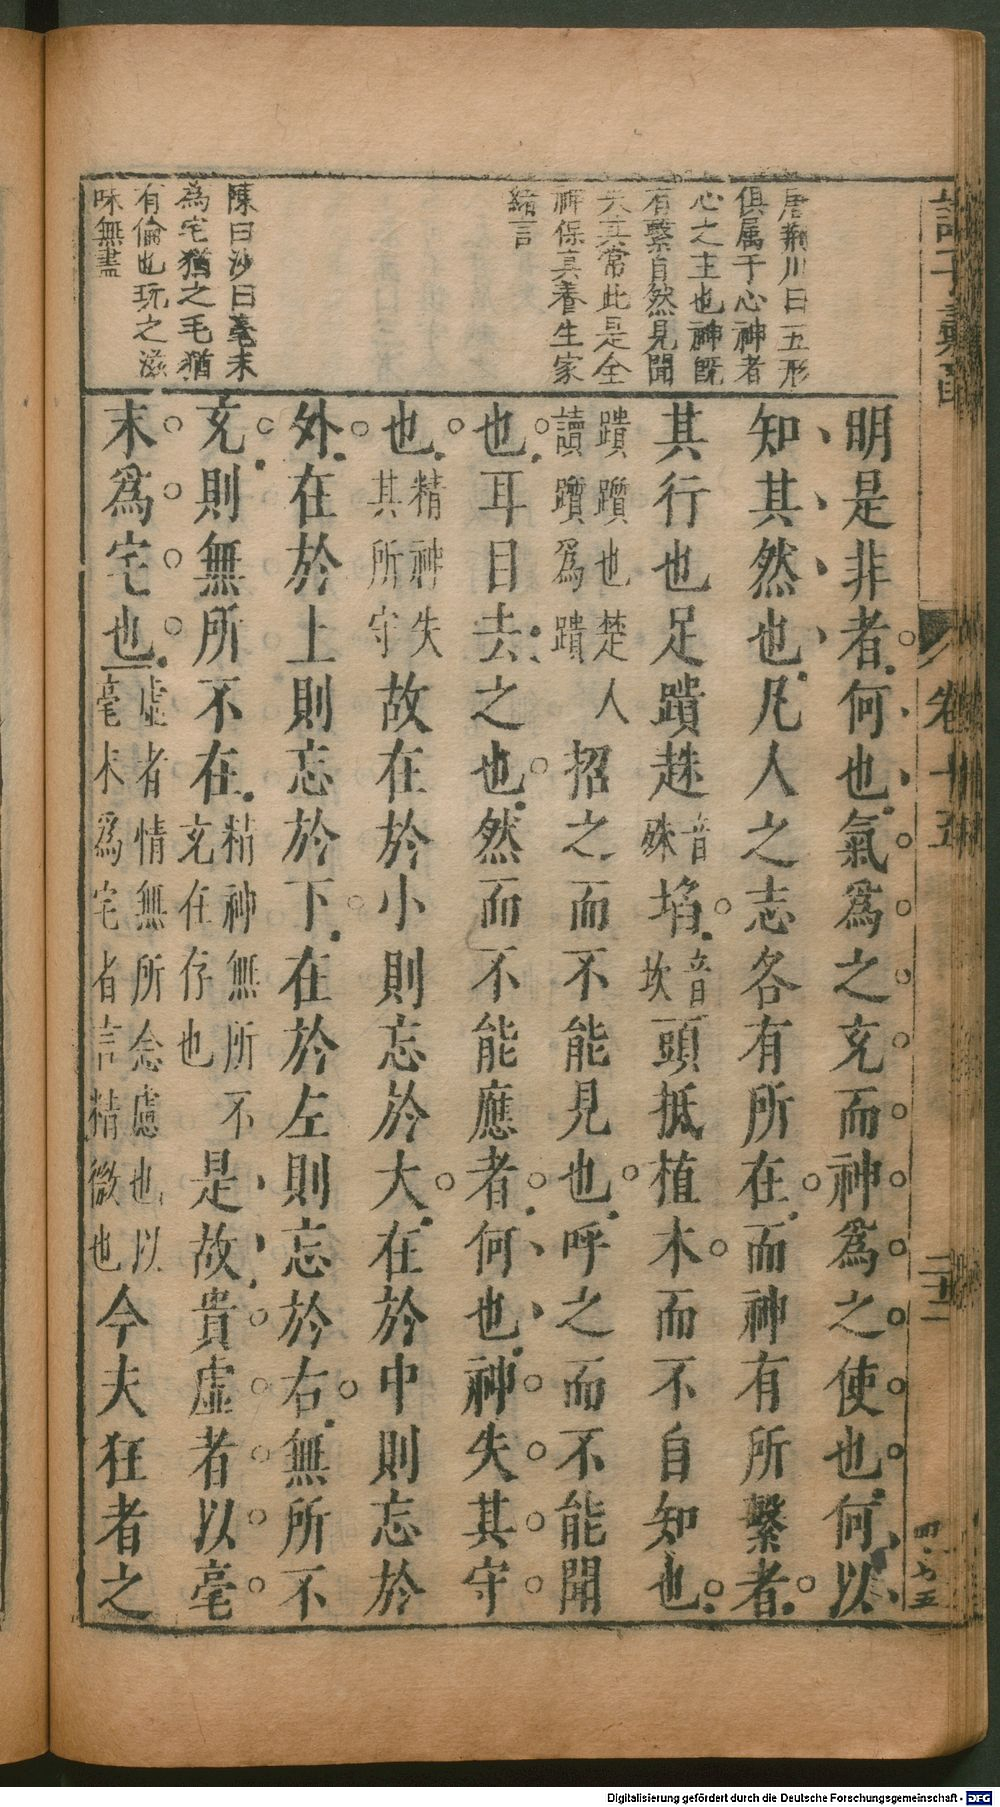 唐荊川曰五形
俱属于心神者
心之主也神既
有繫自然見聞
失其常此是全
神保真養生家
緒言
陳白沙曰毫末
為宅猶之毛猶
有倫也玩之滋
味無盡
明是非者何也氣爲之充而神爲之使也何以
知其然也凡人之志各有所在而神有所繫者
其行也足蹪趎音株埳音坎頭抵植木而不自知也
蹪躓也楚人讀躓爲蹪招之而不能見也呼之而不能聞
也耳目去之也然而不能應者何也神失其守
也精神失其所守故在於小則忘於大在於中則忘於
外在於上則忘於下在於左則忘於右無所不
充則無所不在精神無所不充在存也是故貴虛者以毫
末爲宅也虛者情無所念慮也以毫末爲宅者言精微也今夫狂者之
卷十五
二十二
Digitalisierung gefördert durch die Deutsche Forschungsgemeinschaft - DFG